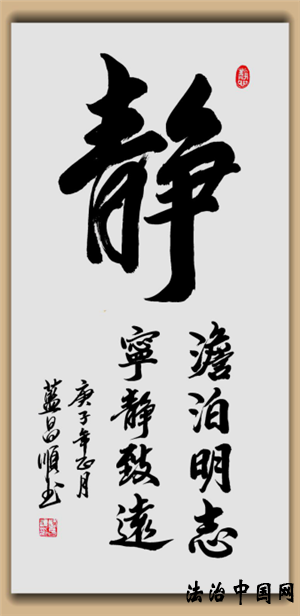 静
澹泊明志
寧静致遠
庚子年正月
藍昌順书
法治中国网